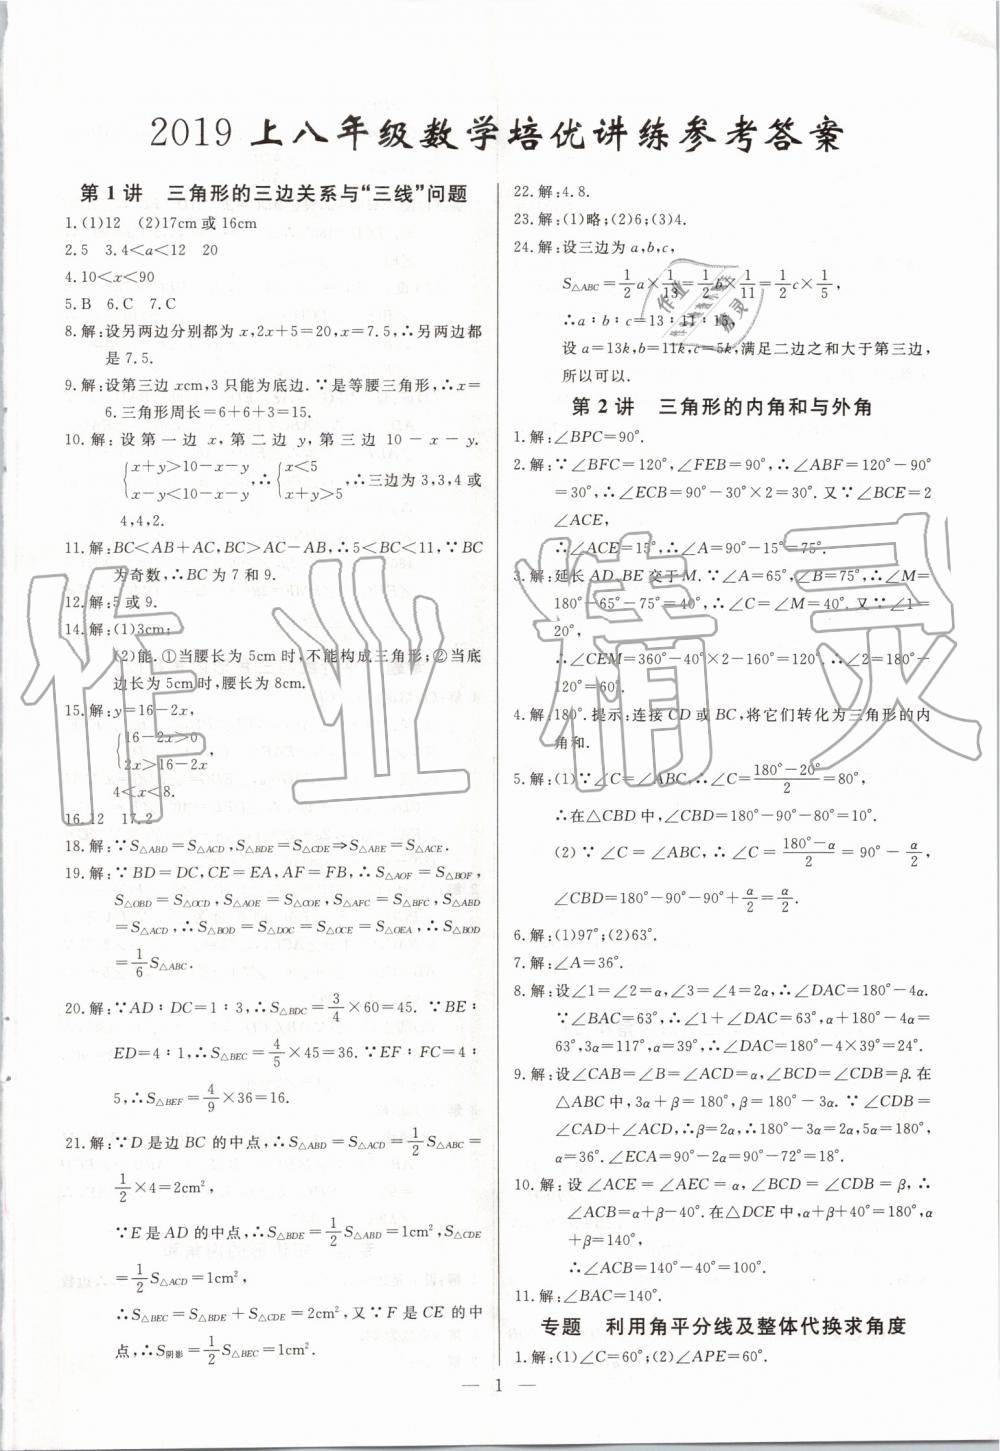 2019上八年级数学培优讲练参考答案
第1讲 三角形的三边关系与“三线”问题
1.(1)12 (2)17cm或16cm
2.5 3.4<a<12 20
4.10<x<90
5.B 6.C 7.C
8.解:设另两边分别都为x,2x+5=20,x=7.5,∴另两边都
是7.5.
9.解:设第三边xcm,3只能为底边.∵是等腰三角形,∴x=
6.三角形周长=6+6+3=15.
10.解:设第一边x,第二边y,第三边10-x-y.
{x+y>10-x-y, x-y<10-x-y,∴{x<5, x+y>5,∴三边为3,3,4或
4,4,2.
11.解:BC<AB+AC,BC>AC-AB,∴5<BC<11,∵BC
为奇数,∴BC为7和9.
12.解:5或9.
14.解:(1)3cm;
(2)能.①当腰长为5cm时,不能构成三角形;②当底
边长为5cm时,腰长为8cm.
15.解:y=16-2x,
{16-2x>0, 2x>16-2x,
4<x<8.
16.12 17.2
18.解:∵S△ABD=S△ACD,S△BDE=S△CDE⇒S△ABE=S△ACE.
19.解:∵BD=DC,CE=EA,AF=FB,∴S△AOF=S△BOF,
S△OBD=S△OCD,S△AOE=S△COE,S△AFC=S△BFC,S△ABD
=S△ACD,∴S△BOD=S△DOC=S△OCE=S△OEA,∴S△BOD
=1/6 S△ABC.
20.解:∵AD∶DC=1∶3,∴S△BDC=3/4×60=45. ∵BE∶
ED=4∶1,∴S△BEC=4/5×45=36.∵EF∶FC=4∶
5,∴S△BEF=4/9×36=16.
21.解:∵D是边BC的中点,∴S△ABD=S△ACD=1/2 S△ABC=
1/2×4=2cm²,
∵E是AD的中点,∴S△BDE=1/2 S△ABD=1cm²,S△CDE
=1/2 S△ACD=1cm²,
∴S△BEC=S△BDE+S△CDE=2cm²,又∵F是CE的中
点,∴S阴影=1/2 S△BEC=1cm².
22.解:4.8.
23.解:(1)略;(2)6;(3)4.
24.解:设三边为a,b,c,
S△ABC=1/2 a×1/13=1/2 b×1/11=1/2 c×1/5,
∴a∶b∶c=13∶11∶15,
设a=13k,b=11k,c=5k,满足二边之和大于第三边,
所以可以.
第2讲 三角形的内角和与外角
1.解:∠BPC=90°.
2.解:∵∠BFC=120°,∠FEB=90°,∴∠ABF=120°-90°
=30°,∴∠ECB=90°-30°×2=30°.又∵∠BCE=2
∠ACE,
∴∠ACE=15°,∴∠A=90°-15°=75°.
3.解:延长AD、BE交于M.∵∠A=65°,∠B=75°,∴∠M=
180°-65°-75°=40°,∴∠C=∠M=40°.又∵∠1=
20°,
∴∠CEM=360°-40°×2-160°=120°.∴∠2=180°-
120°=60°.
4.解:180°.提示:连接CD或BC,将它们转化为三角形的内
角和.
5.解:(1)∵∠C=∠ABC,∴∠C=(180°-20°)/2=80°,
∴在△CBD中,∠CBD=180°-90°-80°=10°.
(2)∵∠C=∠ABC,∴∠C=(180°-α)/2=90°-α/2,
∠CBD=180°-90°-90°+α/2=α/2.
6.解:(1)97°;(2)63°.
7.解:∠A=36°.
8.解:设∠1=∠2=α,∠3=∠4=2α,∴∠DAC=180°-4α.
∵∠BAC=63°,∴∠1+∠DAC=63°,α+180°-4α=
63°,3α=117°,α=39°,∴∠DAC=180°-4×39°=24°.
9.解:设∠CAB=∠B=∠ACD=α,∠BCD=∠CDB=β.在
△ABC中,3α+β=180°,β=180°-3α.∵∠CDB=
∠CAD+∠ACD,∴β=2α,∴180°-3α=2α,5α=180°,
α=36°.∠ECA=90°-2α=90°-72°=18°.
10.解:设∠ACE=∠AEC=α,∠BCD=∠CDB=β,∴
∠ACB=α+β-40°.在△DCE中,α+β+40°=180°,
α+β=140°,
∴∠ACB=140°-40°=100°.
11.解:∠BAC=140°.
专题 利用角平分线及整体代换求角度
1.解:(1)∠C=60°;(2)∠APE=60°.
— 1 —
作业精灵
作业
精灵